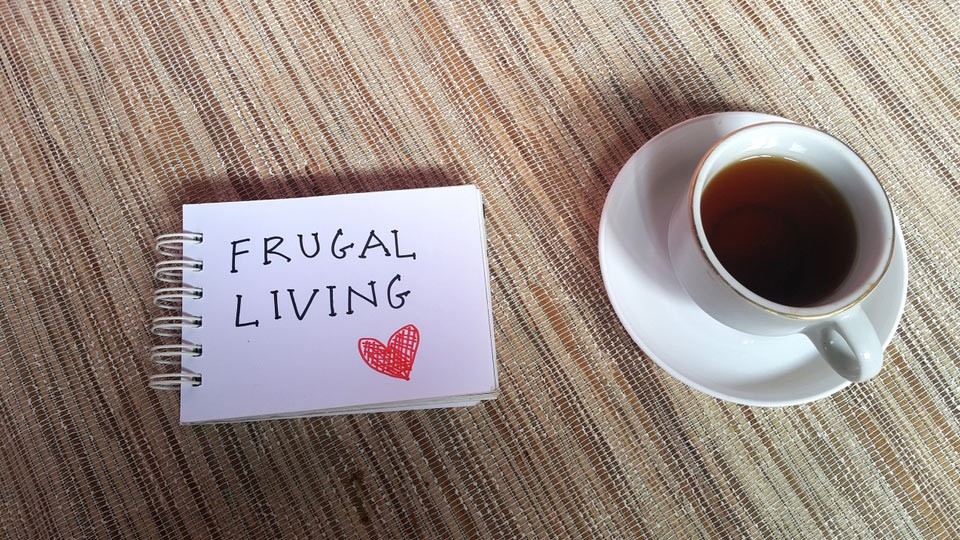 FRUGAL
LIVING